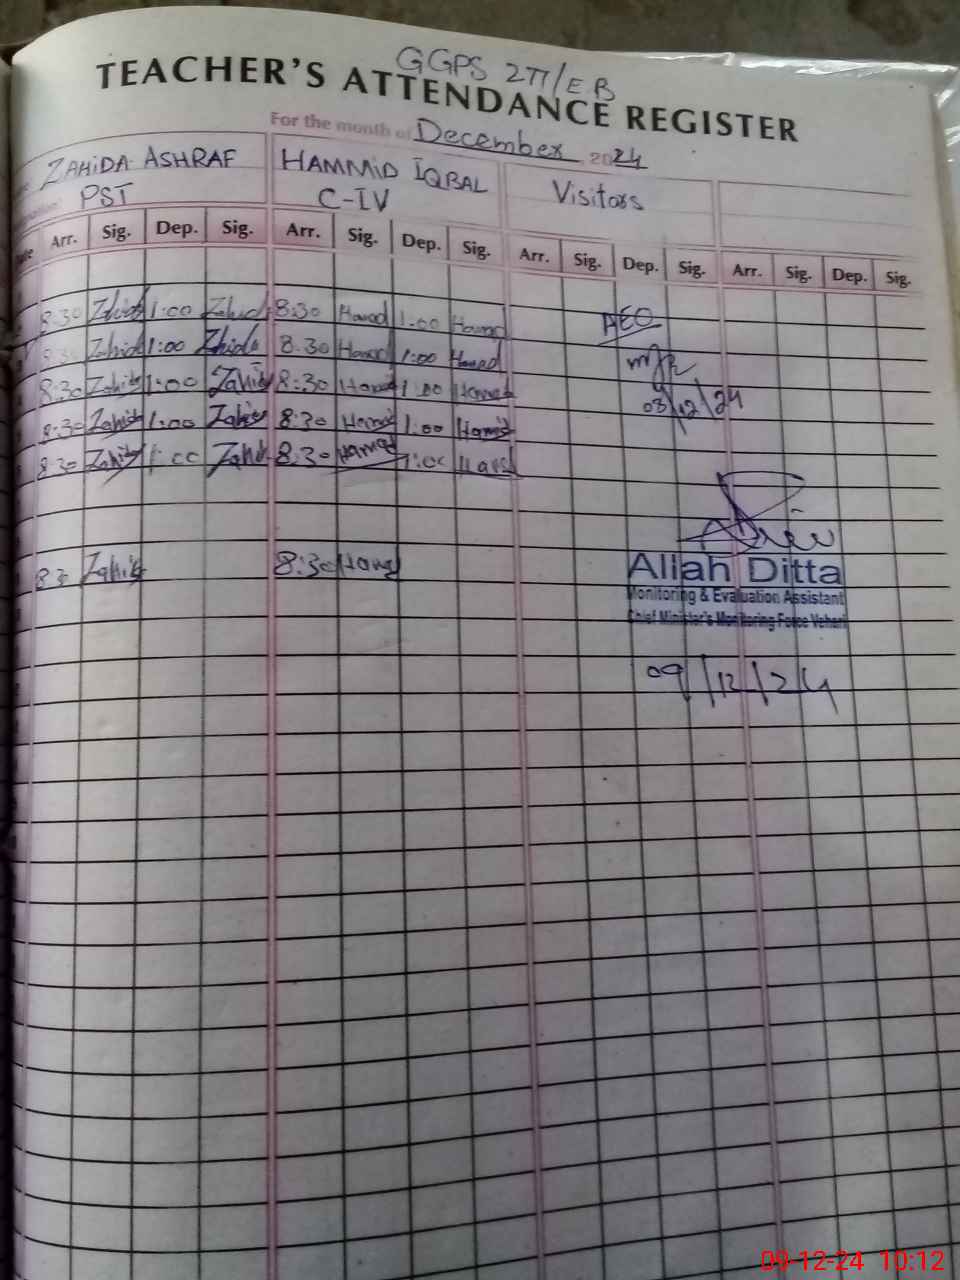 GGPS 277/EB
TEACHER'S ATTENDANCE REGISTER
For the month of December 2024
ZAHIDA ASHRAF HAMMID IQBAL Visitors
PST C-IV
Arr. Sig. Dep. Sig. Arr. Sig. Dep. Sig. Arr. Sig. Dep. Sig. Arr. Sig. Dep. Sig.
8:30 Zahida 1:00 Zahida 8:30 Hamed 1:00 Hamed AEO
8:30 Zahida 1:00 Zahida 8:30 Hamed 1:00 Hamed
8:30 Zahida 1:00 Zahida 8:30 Hamid 1:00 Hamed 03/12/24
8:30 Zahida 1:00 Zahida 8:30 Hamid 1:00 Hamid
8:30 Zahida 1:00 Zahida 8:30 Hamed 1:00
83 Zahida 8:30 Hamd
Allah Ditta
Monitoring & Evaluation Assistant
Chief Minister's Monitoring Force Vehari
09/12/24
09-12-24 10:12